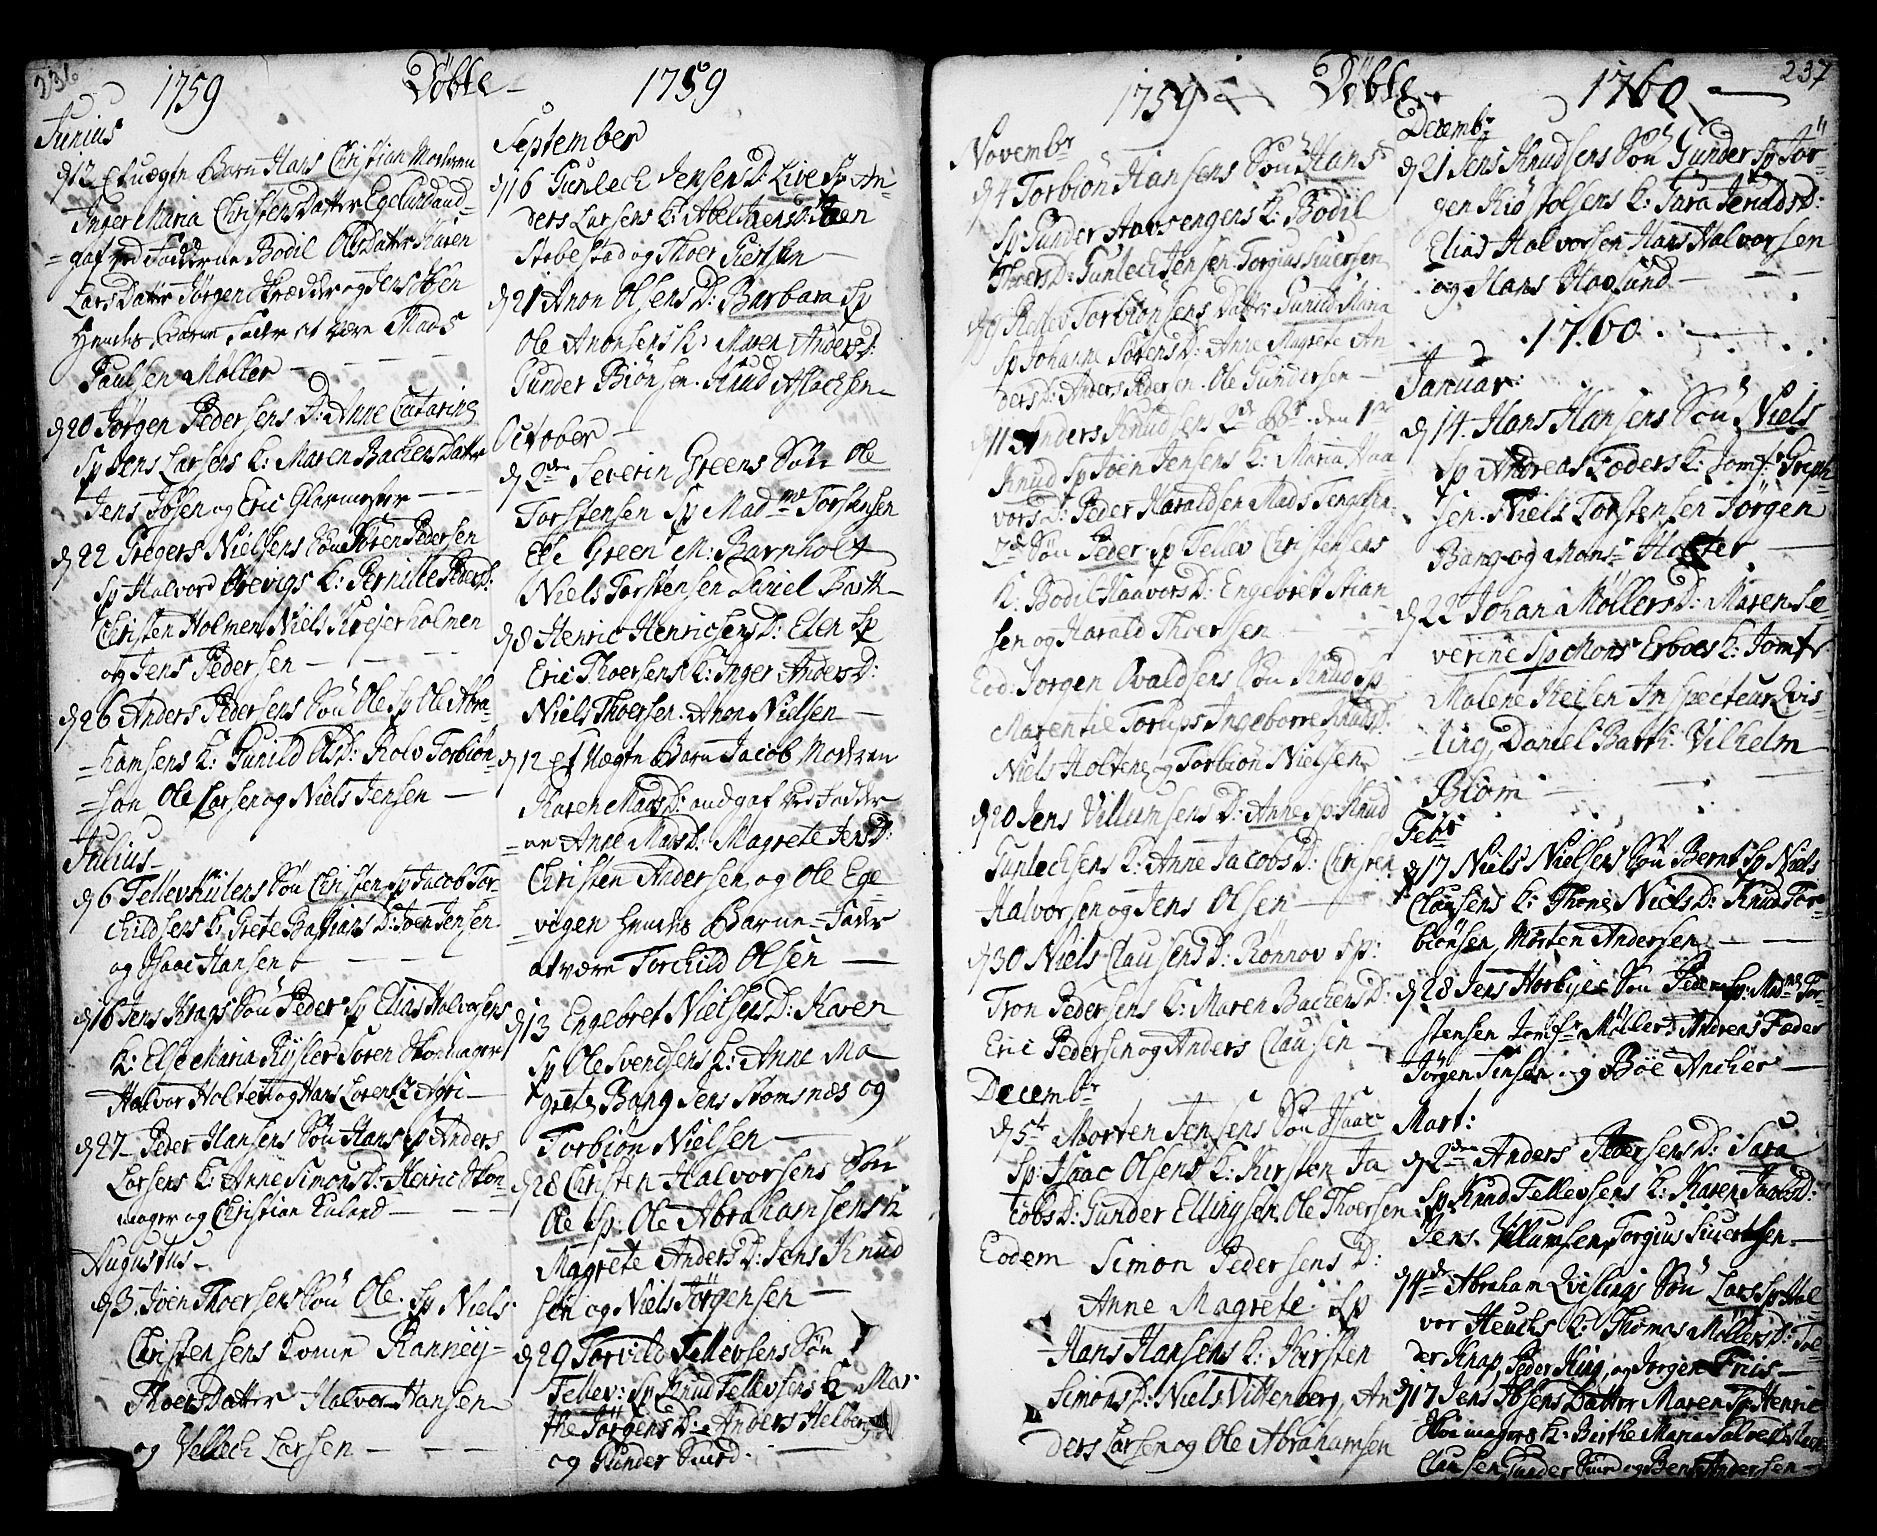 236
1759 Döbte
Junius
d 12 Et uægte Barn Hans Christian Modren
Inger Maria Christens Datter Egelund ud=
=gaf ved Fadderne Bodil Ols Datter Karen
Lars Datter Jörgen Skrædder og Jens Ibsen
Hendes Barne Fader at være Mads
Paulsen Møller
d 20 Jörgen Pedersens D: Anne Catarina
Sp Jens Larsens K: Maren Backens Datter
Jens Ibsen og Eric Glarmester
d 22 Gregers Nielsens Sön Sören Pedersen
Sp Halvord Grevigs K: Pernille Peders D:
Christen Holmen Niels Krejerholmen
og Jens Pedersen
d 26 Anders Pedersens Sön Ole Sp Ole Abra=
=hamsens K: Gunild Ols D: Rolv Torbiön=
=sen Ole Larsen og Niels Jensen
Julius
d 6 Tellev Sön Christen Sp Jacob Tor=
childsens K: Grete Bastians D: Joen Jensen
og Isaac Hansen
d 16 Jens Krags Sön Peder Sp Elias Halvorsens
K: Else Maria Kysler Sören Skomager
Halvor Holten og Hans Lorentz
d 27 Peder Hansens Sön Hans Sp Anders
Larsens K: Anne Simons D: Henric Skom=
mager og Christian Kaland
Augustus
d 3. Joen Thoersens Sön Ole. Sp Niels
Christensens Kone Ranney
Thoers Datter Halvor Hansen
og Vellech Larsen
1759
September
d 16 Gunlech Jensens D: Live Sp An=
ders Larsens K: Abel Jens D: Steen
Stabestad og Thoer Giertsen
d 21 Anon Olsens D: Barbara Sp
Ole Anonsens K: Maren Anders D:
Gunder Biönsen. Knud Aslachsen
October
d 2den Severin Greens Sön Ole
Torstensen Sp Madme Torstensen
Else Green M: Barnholt
Niels Torstensen Daniel Barth
d 8 Henric Henricsens D: Elen Sp
Eric Thoersens K: Inger Anders D:
Niels Thoersen. Anon Nielsen
d 12 et Uægte Barn Jacob Modren
Karen Mads D: audgaf ved Fadder=
=ne Anne Mads D: Magrete Jens D:
Christen Andersen og Ole Ege=
=vigen hendes Barne=Fader
at være Torchild Olsen
d 13 Engebret Nielsens D: Karen
Sp Ole Svendsens K: Anne Ma=
grete Bang Jens Stomsnæs og
Torbiön Nielsen
d 28 Christen Halvorsens Sön
Ole Sp: Ole Abrahamsens K
Magrete Anders D: Jens Knud
sön og Niels Jörgensen
d 29 Torvild Tellevsens Sön
Tellev: Sp Knud Tellevsens K Mar
the Jörgens D: Anders Helböe
og Gunder Siurd
1759 Döbte
Novembr
d 4 Torbiön Hansens Sön Hans
Sp: Gunder Aarsengens K: Bodil
Thoers D: Gunlech Jensen Torgius Siuersen
d 9 Tellev Torbiönsens Datter Gunild Maria
Sp Johanne Sörens D: Anne Magrete An
ders D: Anders Pedersen. Ole Gundersen
d 11 Anders Knudsens 2de Bö: den 1te
Knud Sp Joen Jensens K: Maria Haa
vors D: Peder Haraldsen Mads
2d Sön Peder Sp Tellev Christensens
K: Bodil Haavors D: Engebret Stian
sen og Harald Thoersen
Eod: Jorgen Ovaldsens Sön Knud Sp
Maren til Torups Ingeborre Knuds D:
Niels Holten og Torbiön Nielsen
d 20 Jens Villumsens D: Anne Sp: Knud
Gunlechsens K: Anne Jacobs D: Christen
Halvorsen og Jens Olsen
d 30 Niels Clausens D: Rönnov Sp:
Tron Pedersens K: Maren Backens D:
Eric Pedersen og Anders Clausen
Decembr
d 5te Morten Jensens Sön Isaac
Sp: Isaac Olsens K: Kirsten Ja
cobs D: Gunder Ellingsen Ole Thoersen
Eodem Simon Pedersens D:
Anne Magrete Sp
Hans Hansens K: Kirsten
Simons D: Niels Vittenberg An
ders Larsen og Ole Abrahamsen
1760 237
Decembr
d 21 Jens Knudsens Sön Gunder Sp Jör=
gen Kiöstolsens K: Sara Jeralds D:
Elias Halvorsen Hans Halvorsen
og Hans Haslund
1760
Januar:
d 14. Hans Hansens Sön Niels
Sp Andreas Fæders K: Jomfr: Greph=
sen. Niels Torstensen Jörgen
Bang og Mons: Holter
d 22 Johan Møllers D: Maren Se=
verine Sp Mons Erboes K: Jomfr
Malene Heisen Inspecteur Qvis=
ling, Daniel Barth. Vilhelm
Biöm
Febr
d 17 Niels Nielsens Sön Bernt Sp Niels
Clausens K: Thone Niels D: Knud Tor=
biönsen Morten Andersen
d 28 Jens Horbyes Sön Peder Sp: Madme Tor=
stensen Jomfr Möller Andreas Fæder
Jörgen Jensen og Böe Ancher
Mart:
d 2den Anders Pedersens D: Sara
Sp Knud Tellevsens K: Karen Jacobs D:
Jens Villumsen Torgius Siuertsen
d 4de Abraham Qvislings Sön Lars Sp Hal
vor Heuchs K: Thomas Möllers D: Fol=
der Knap, Peder King, og Jorgen Friis
d 17 Jens Ibsens Datter Maren Sp Henric
Skomagers K: Birthe Maria Salves D:
Clausen Gunder Siurd og Bent Andersen